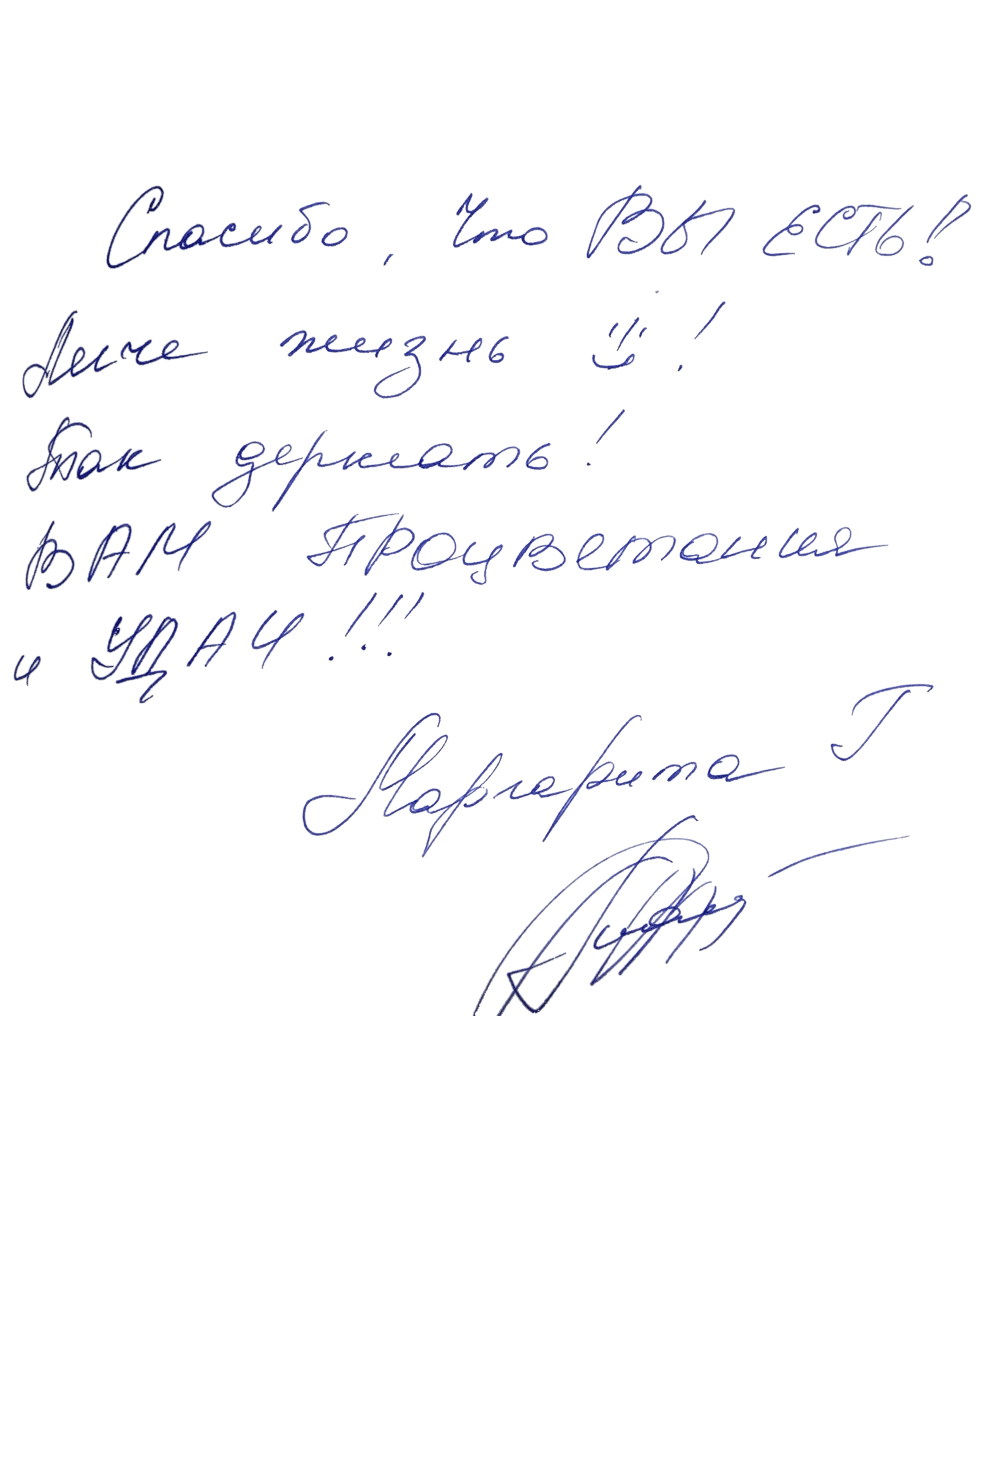 Спасибо, что ВЫ ЕСТЬ!
жизнь !
Так держать!
ВАМ Процветания
и УДАЧ!!!
Маргарита Г